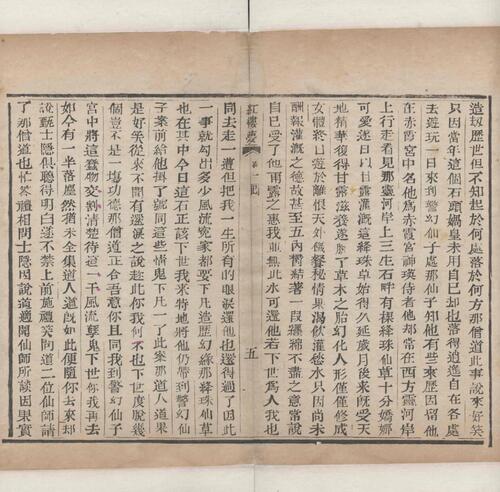 造刼歴世但不知起於何方落於何方那僧道此事說來好笑
只因當年這個石頭媧皇未用自己却也落得逍遥自在各處
去遊玩一日來到警幻仙子處那仙子知他有些來歴因留他
在赤霞宮中名他爲赤霞宮神瑛侍者他却常在西方靈河岸
上行走看見那靈河岸上三生石畔有棵絳珠仙草十分嬌娜
可愛遂日以甘露灌漑這絳珠草始得久延歲月後來既受天
地精華復得甘露滋養遂脫了草木之胎幻化人形僅僅修成
女體終日遊於離恨天外饑餐秘情果渴飲灌愁水只因尚未
酬報灌漑之德故甚至五內鬱結著一段纒綿不盡之意常說
自己受了他雨露之惠我並無此水可還他若下世爲人我也
紅樓夢 第一囘
五
同去走一遭但把我一生所有的眼淚還他也還得過了因此
一事就勾出多少風流寃家都要下凡造歴幻緣那絳珠仙草
也在其中今日這石正該下世我來特地將他仍帶到警幻仙
子案前給他掛了號同這些情鬼下凡一了此案那道人道果
是好笑從來不聞有還淚之說趂此你我何不也下世度脫幾
個豈不是一塲功德那僧道正合吾意你且同我到警幻仙子
宮中將這蠢物交割淸楚待這一干風流孽鬼下世你我再去
如今有一半落塵然猶未全集道人道既如此便隨你去來却
說甄士隱俱聽得明白遂不禁上前施禮笑問道二位仙師請
了那僧道也忙答禮相問士隱因說道適聞仙師所談因果實